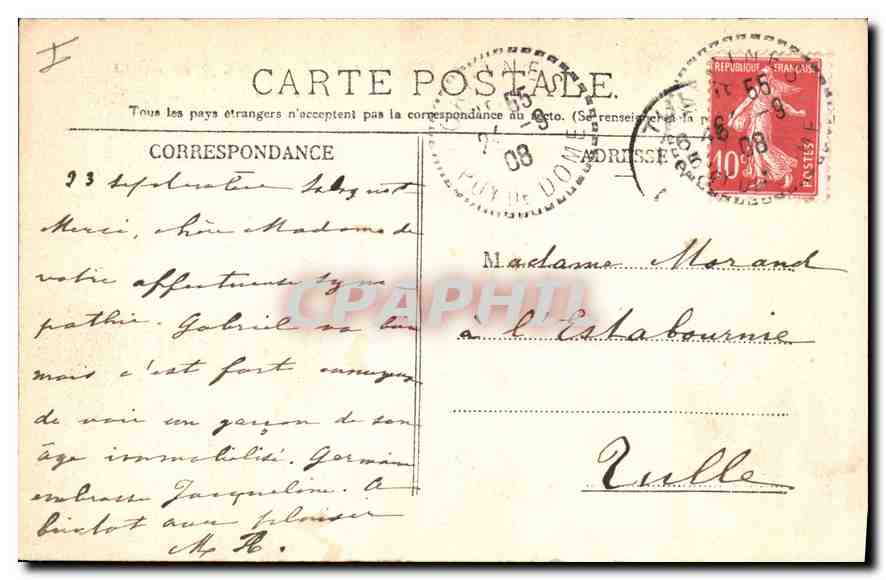 CARTE POSTALE.
Tous les pays étrangers n'acceptent pas la correspondance au recto. (Se renseigner à la
CORRESPONDANCE
ADRESSE
REPUBLIQUE FRANÇAISE
10c
POSTES
55
-9
08
PUY DE DOME
55
-9
08
23 septembre
Merci, chère Madame de
votre affectueuse sym
pathie. Gabriel va bien
mais c'est fort ennuyeux
de voir un garçon de son
âge immobilisé. Germaine
embrasse Jacqueline. A
bientot avec plaisir
Madame Morand
à l'Estabournie
Tulle
CPAPHIL